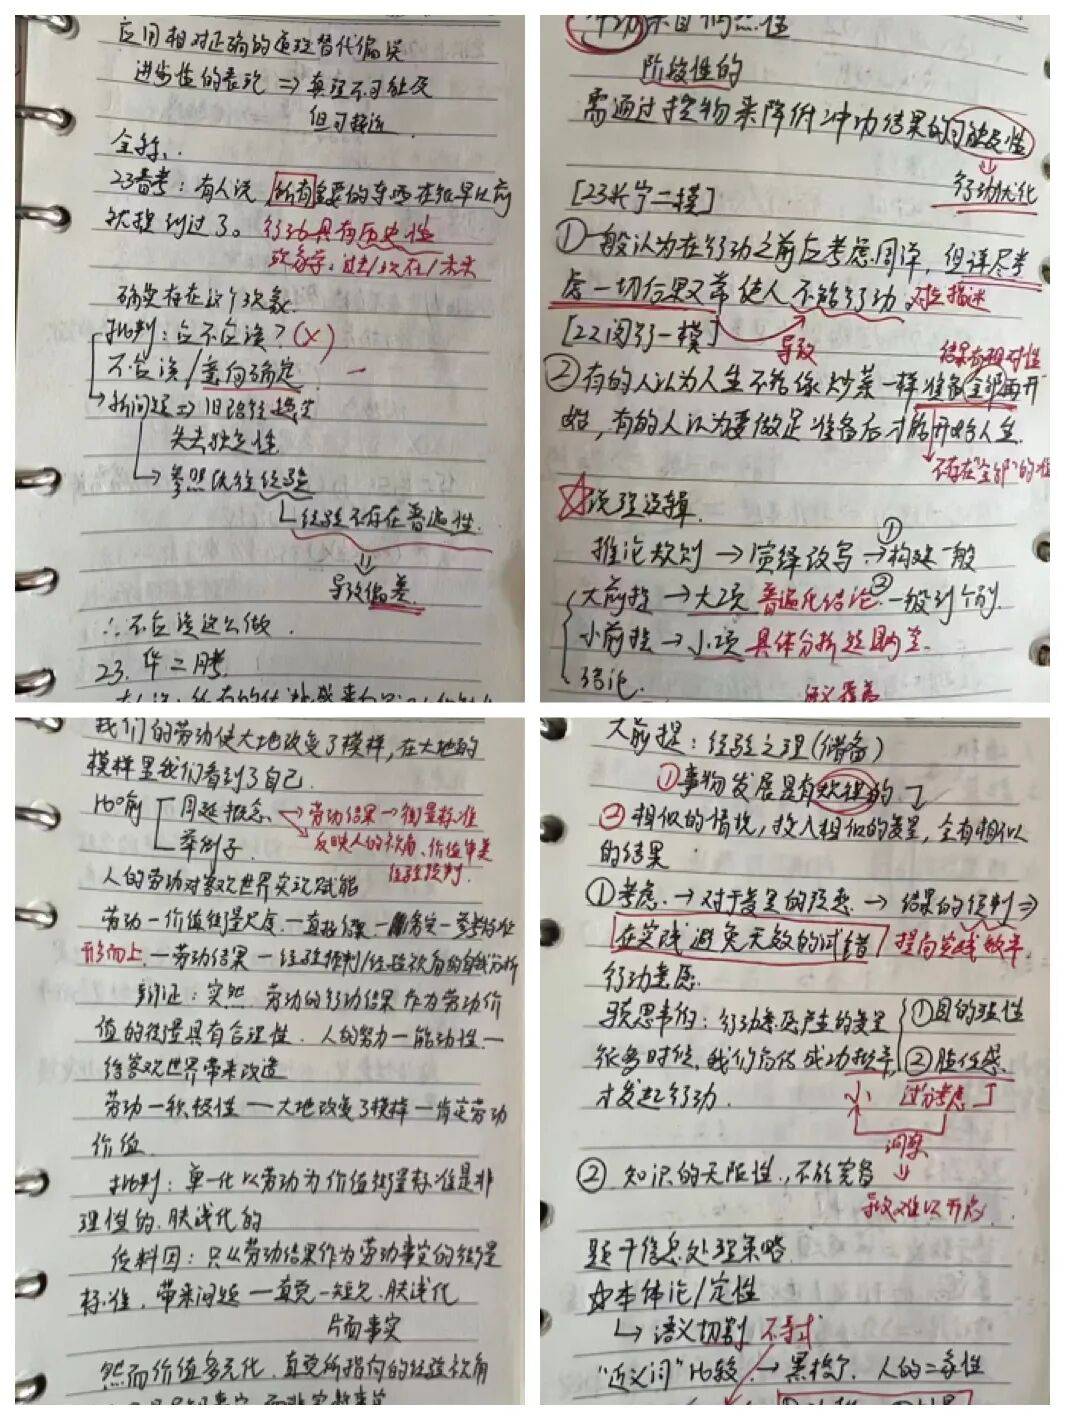 应用相对正确的道理替代偏误
进步性的表况 ⇒ 真理不可能及
但可接近
全称、
23春考：有人说，所有重要的东西在很早以前
就提到过了。行动具有历史性
过去/现在/未来
确实存在这个现象
批判：应不应该？(X)
不应该/
新问题⇒旧经验
失去独立性
→参照以往经验
经验不存在普遍性.
⇓
导致偏差.
∴不应该这么做.
23. 华二月考.
冲动来自偶然性
阶段性的
需通过控物来降低冲动结果的可能及性
行动优化
[23长宁二模]
①一般认为在行动之前应考虑周详，但详尽考
虑一切后果又常使人不能行动.对应描述
[22闵行一模]
导致
结果有相对性
②有的人认为人生不能像炒菜一样准备全部再开
始，有的人认为要做足准备后才能开始人生.
不存在"全部"的
☆说理逻辑.
推论规则→演绎改写→①构建一般
大前提→大项 普遍化结论.②一般到个别.
小前提→小项 具体分析
结论.
语义覆盖
我们的劳动使大地改变了模样，在大地的
模样里我们看到了自己.
160前 周延概念 劳动结果—衡量标准
举例子. 反映人的视角、价值审美
经验预判.
人的劳动对客观世界实现赋能
劳动—价值衡量尺度.—直接结果—
形而上.—劳动结果—经验推判/经验视角的
辩证：实然 劳动的行动结果作为劳动价
值的衡量具有合理性.人的努力—能动性.—
给客观世界带来改造
劳动—积极性—大地改变了模样—肯定劳动
价值.
批判：单一化以劳动为价值衡量标准是非
理性的.肤浅化的
质料因：只从劳动结果作为劳动事实的衡量
标准.带来问题—直觉—短见.肤浅化
片面事实
然而价值多元化.直觉所指向的经验视角
大前提：经验之理(储备)
①事物发展是有规律的.
②相似的情境，投入相似的变量，会有相似
的结果
①考虑.→对于变量的设想.→结果的预判⇒
在实践避免无效的试错/提高实践效率.
行动意愿.
驱思事的：行动意愿产生的变量 ①目的理性
很多时候，我们高估成功概率，②胜任感.
才发起行动. 小 过分考虑
洞察
②.知识的无限性.，不能完备
导致难以开启.
题干信息处理策略.
☆本体论/定性
→语义切割 不等式
"近义词"比较.→黑格尔.人的二象性